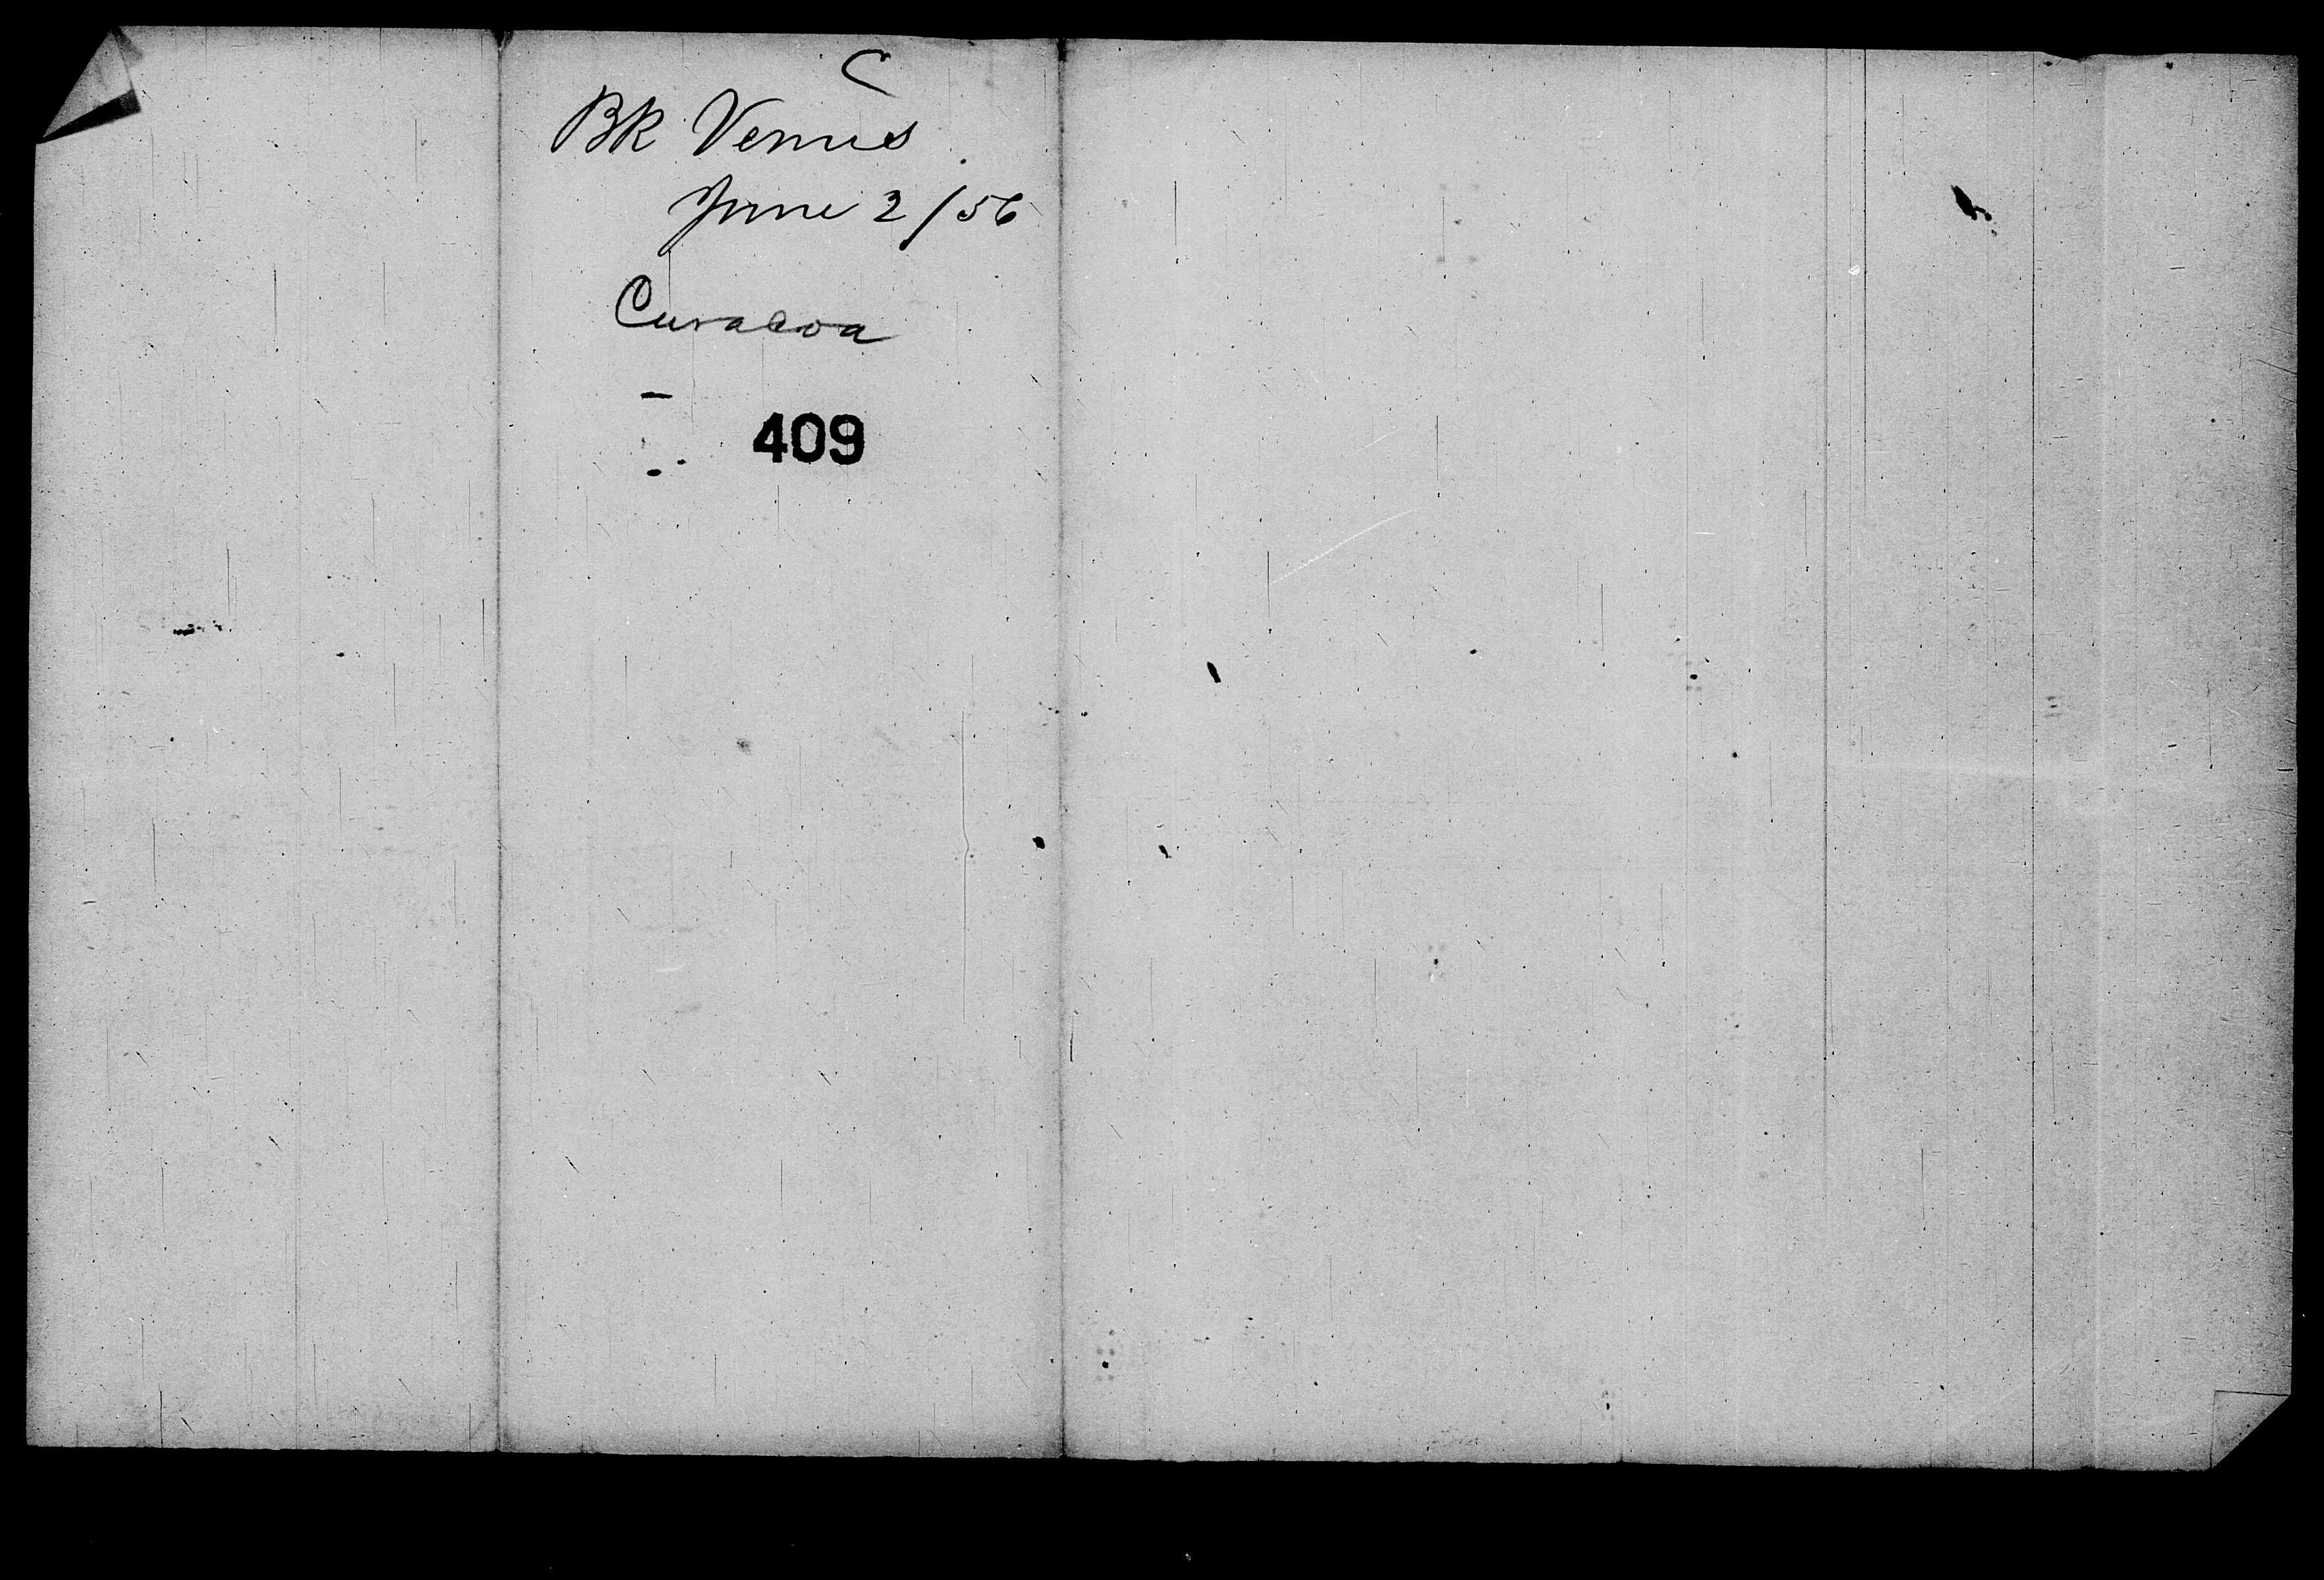 C
BK Venus
June 2/56
Curacoa
409